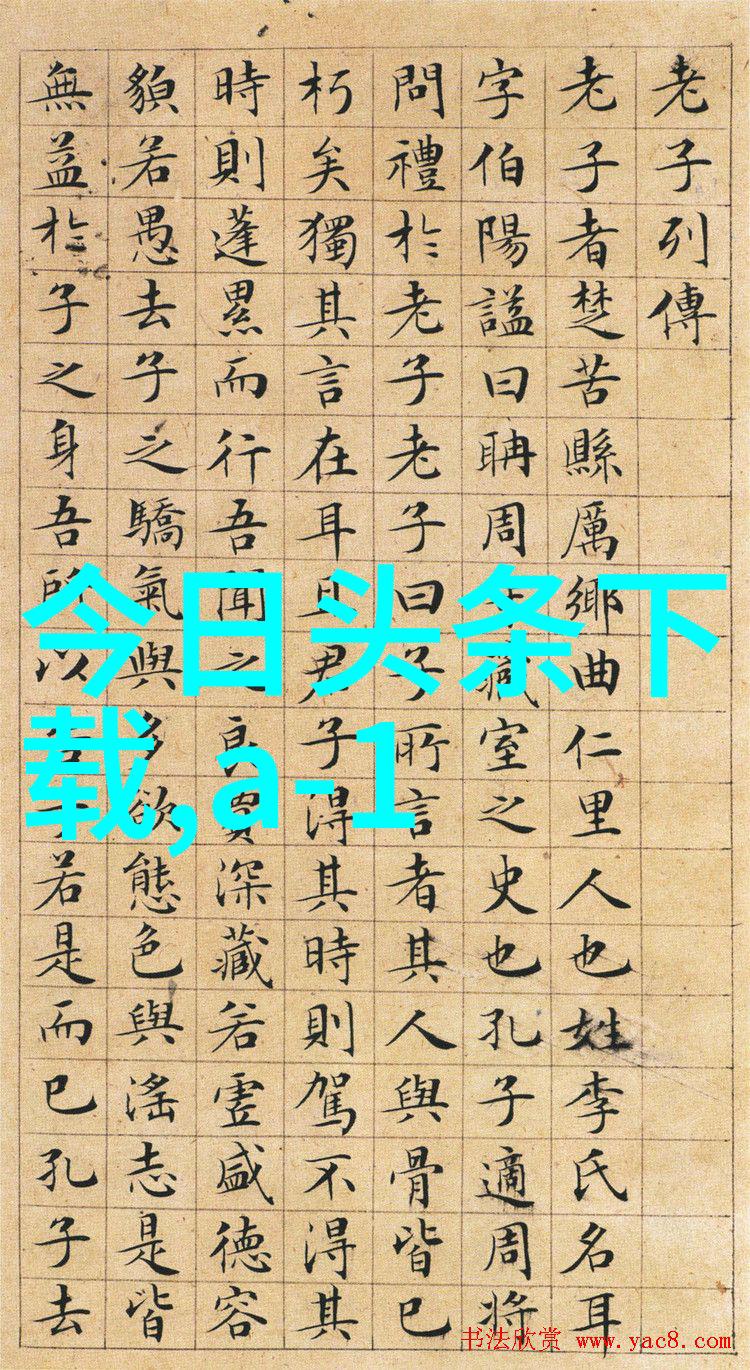 老子列傳
老子者楚苦縣厲鄉曲仁里人也姓李氏名耳
字伯陽謚曰聃周藏室之史也孔子適周將
問禮於老子老子曰子所言者其人與骨皆已
朽矣獨其言在耳且君子得其時則駕不得其
時則蓬累而行吾聞之良賈深藏若虛盛德容
貌若愚去子之驕氣與多欲態色與淫志是皆
無益於子之身吾所以若是而已孔子去
今日头条下
载,a-1
书法欣赏 www.yac8.com